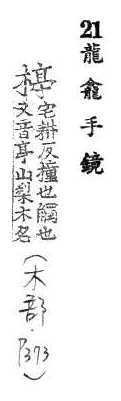 21龍龕手鏡
揨宅耕反撞也觸也
又音亭山梨木名
(木部·P373)